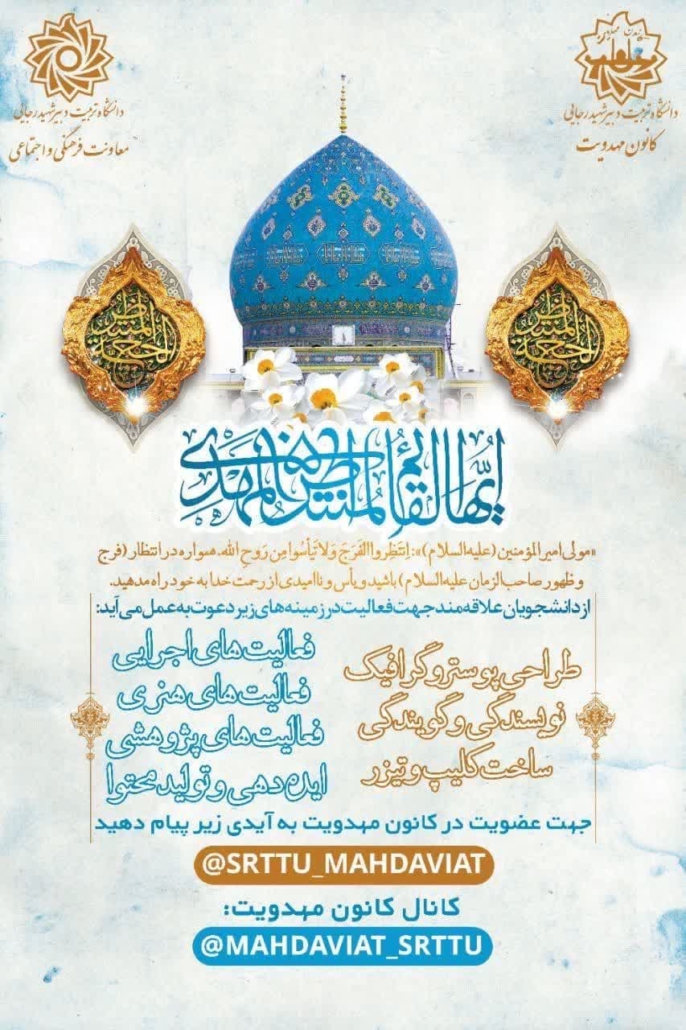 دانشگاه تربیت دبیر شهید رجایی
کانون مهدویت
دانشگاه تربیت دبیر شهید رجایی
معاونت فرهنگی و اجتماعی
ایها القائم المنتظر المهدی
«مولی امیرالمؤمنین (علیه السلام)»: اِنتَظِروا الفَرَجَ وَلا تَیأسُوا مِن رَوحِ الله. همواره در انتظار (فرج
و ظهور صاحب الزمان علیه السلام) باشید و یأس و ناامیدی از رحمت خدا به خود راه مدهید.
از دانشجویان علاقه مند جهت فعالیت در زمینه های زیر دعوت به عمل می آید:
طراحی پوستر و گرافیک
نویسندگی و گویندگی
ساخت کلیپ و تیزر
فعالیت های اجرایی
فعالیت های هنری
فعالیت های پژوهشی
ایده دهی و تولید محتوا
جهت عضویت در کانون مهدویت به آیدی زیر پیام دهید
@SRTTU_MAHDAVIAT
کانال کانون مهدویت:
@MAHDAVIAT_SRTTU